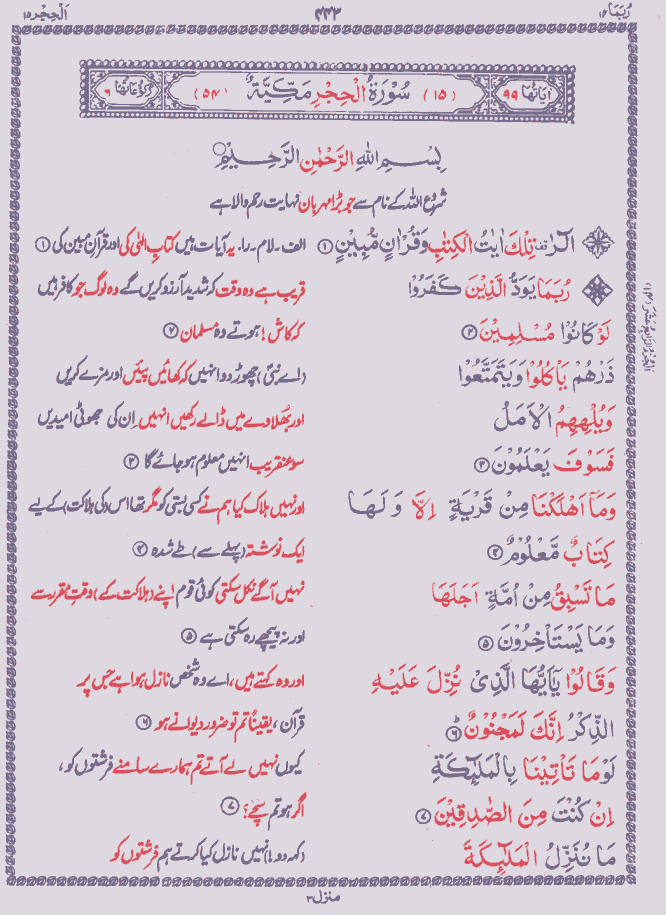 رُبَمَا ۱۴ ۴۳۳ اَلْحِجْر ۱۵
اٰیَاتُهَا ۹۹ (۱۵) سُوْرَةُ الْحِجْرِ مَكِّيَّةٌ (۵۴) رُكُوْعَاتُهَا ۶
بِسْمِ اللّٰهِ الرَّحْمٰنِ الرَّحِيْمِ
شروع اللہ کے نام سے جو بڑا مہربان نہایت رحم والا ہے
الٓرٰ تِلْكَ اٰيٰتُ الْكِتٰبِ وَقُرْاٰنٍ مُّبِيْنٍ ۱ الف۔ لام۔ را۔ یہ آیات ہیں کتابِ الٰہی کی اور قرآنِ مبین کی ۱
رُبَمَا يَوَدُّ الَّذِيْنَ كَفَرُوْا قریب ہے وہ وقت کہ شدید آرزو کریں گے وہ لوگ جو کافر ہیں
لَوْ كَانُوْا مُسْلِمِيْنَ ۲ کہ کاش! ہوتے وہ مسلمان ۲
ذَرْهُمْ يَاْكُلُوْا وَيَتَمَتَّعُوْا (اے نبیؐ) چھوڑ دو انہیں کہ کھائیں پئیں اور مزے کریں
وَيُلْهِهِمُ الْاَمَلُ اور بھلاوے میں ڈالے رکھیں انہیں اِن کی جھوٹی امیدیں
فَسَوْفَ يَعْلَمُوْنَ ۳ سو عنقریب انہیں معلوم ہو جائے گا ۳
وَمَاۤ اَهْلَكْنَا مِنْ قَرْيَةٍ اِلَّا وَلَهَا اور نہیں ہلاک کیا ہم نے کسی بستی کو مگر تھا اس (کی ہلاکت) کے لیے
كِتَابٌ مَّعْلُوْمٌ ۴ ایک نوشتہ (پہلے سے) طے شدہ ۴
مَا تَسْبِقُ مِنْ اُمَّةٍ اَجَلَهَا نہیں آگے نکل سکتی کوئی قوم اپنے (ہلاکت کے) وقتِ مقرر سے
وَمَا يَسْتَاْخِرُوْنَ ۵ اور نہ پیچھے رہ سکتی ہے ۵
وَقَالُوْا يٰۤاَيُّهَا الَّذِيْ نُزِّلَ عَلَيْهِ اور وہ کہتے ہیں، اے وہ شخص نازل ہوا ہے جس پر
الذِّكْرُ اِنَّكَ لَمَجْنُوْنٌ ۶ قرآن، یقیناً تم تو ضرور دیوانے ہو ۶
لَوْمَا تَاْتِيْنَا بِالْمَلٰٓئِكَةِ کیوں نہیں لے آتے تم ہمارے سامنے فرشتوں کو،
اِنْ كُنْتَ مِنَ الصّٰدِقِيْنَ ۷ اگر ہو تم سچے؟ ۷
مَا نُنَزِّلُ الْمَلٰٓئِكَةَ (کہہ دو!) نہیں نازل کیا کرتے ہم فرشتوں کو
منزل ۳